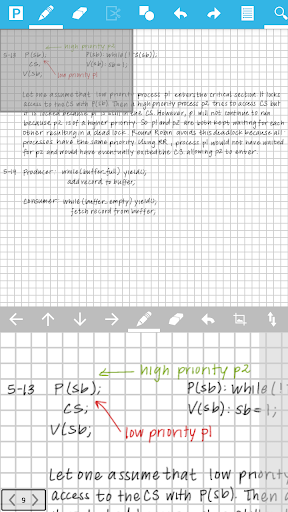 high priority p2
5-13 P(sb); P(sb): while(!S(sb));
CS; V(sb): sb=1;
V(sb; low priority p1
Let one assume that low priority process p1 enters the critical section. It locks
access to the CS with P(sb). Then a high priority process p2 tries to access CS but
it is locked because p1 is still in the CS. However, p1 will not continue to run
because p2 is of a higher priority. So p1 and p2 are both kept waiting for each
other resulting in a dead lock. Round Robin avoids this deadlock because all
processes have the same priority. Using RR, process p1 would not have waited
for p2 and would have eventually exited the CS allowing p2 to enter.
5-19 Producer: while(buffer_full) yield();
add record to buffer;
Consumer: while(buffer_empty) yield();
fetch record from buffer;
high priority p2
5-13 P(sb); P(sb): while(!
CS; V(sb): sb=1;
V(sb; low priority p1
Let one assume that low priority
access to the CS with P(sb). Then a
9